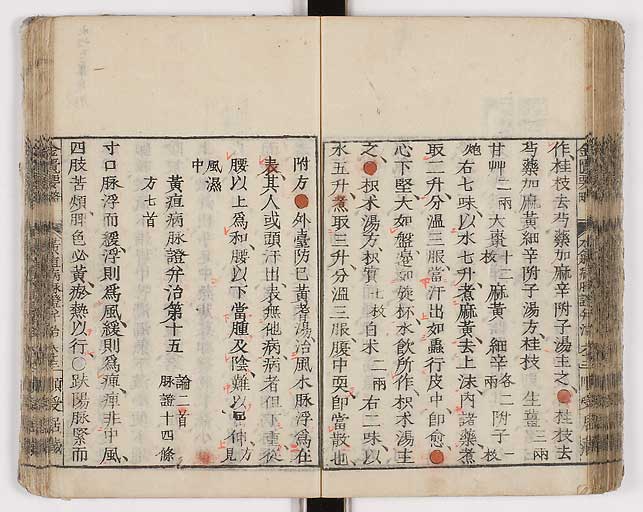 作桂枝去芍藥加麻辛附子湯主之●桂枝去
芍藥加麻黃細辛附子湯方桂枝 生薑三兩
甘艸二兩大棗十二枚麻黃 細辛各二兩附子一枚
炮右七味以水七升煮麻黃去上沫内諸藥煮
取二升分溫三服當汗出如蟲行皮中卽愈●
心下堅大如盤邊如旋杯水飲所作枳朮湯主
之●枳朮湯方枳實七枚白朮二兩右二味以
水五升煮取三升分溫三服腹中耎卽當散也
附方●外臺防已黃耆湯治風水脉浮爲在
表其人或頭汗出表無他病病者但下重從
腰以上爲和腰以下當腫及陰難以屈伸方見
風濕
中
黃疸病脉證弁治第十五 論二首
方七首 脉證十四條
寸口脉浮而緩浮則爲風緩則爲痺痺非中風
四肢苦煩脾色必黃瘀熱以行○趺陽脉緊而